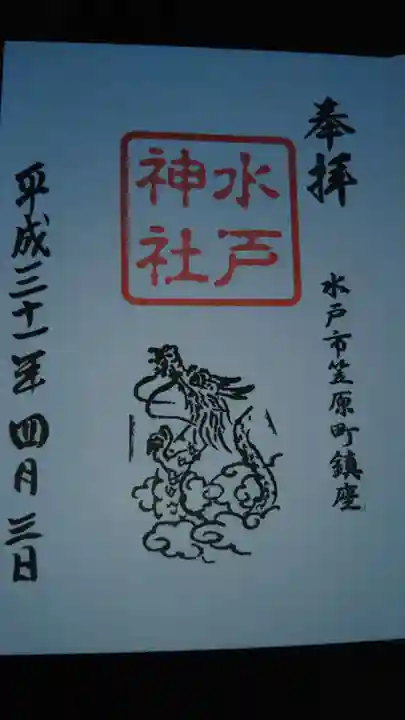 奉拝
水戸市笠原町鎮座
水戸
神社
平成三十一年 四月三日